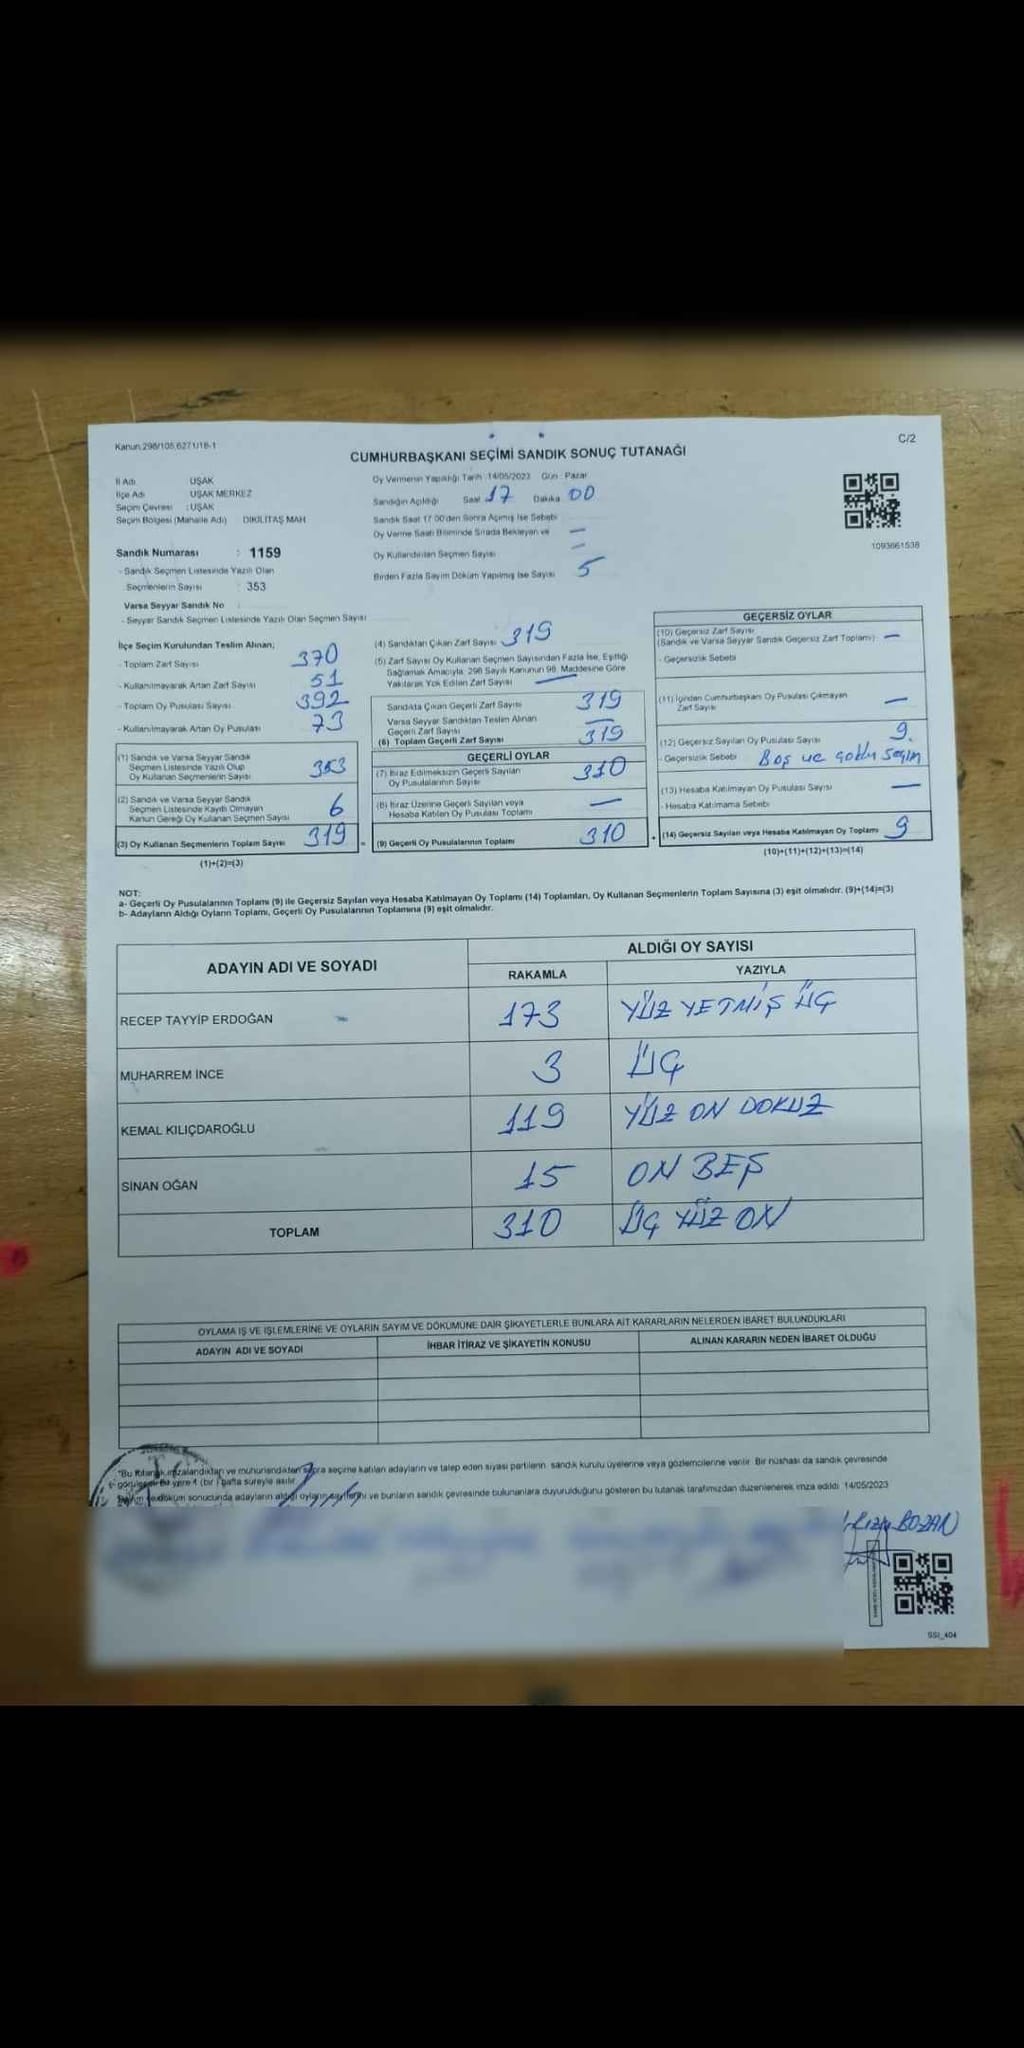 Kanun;298/105,6271/18-1
C/2
CUMHURBAŞKANI SEÇİMİ SANDIK SONUÇ TUTANAĞI
İl Adı UŞAK
İlçe Adı UŞAK MERKEZ
Seçim Çevresi : UŞAK
Seçim Bölgesi (Mahalle Adı) DİKİLİTAŞ MAH
Sandık Numarası : 1159
- Sandık Seçmen Listesinde Yazılı Olan
Seçmenlerin Sayısı : 353
Varsa Seyyar Sandık No
- Seyyar Sandık Seçmen Listesinde Yazılı Olan Seçmen Sayısı
Oy Vermenin Yapıldığı Tarih : 14/05/2023 Gün : Pazar
Sandığın Açıldığı Saat 17 Dakika 00
Sandık Saat 17.00'den Sonra Açılmış İse Sebebi
Oy Verme Saati Bitiminde Sırada Bekleyen ve —
Oy Kullandırılan Seçmen Sayısı —
Birden Fazla Sayım Döküm Yapılmış İse Sayısı 5
1093661538
İlçe Seçim Kurulundan Teslim Alınan;
- Toplam Zarf Sayısı 370
- Kullanılmayarak Artan Zarf Sayısı 51
- Toplam Oy Pusulası Sayısı 392
- Kullanılmayarak Artan Oy Pusulası 73
(1) Sandık ve Varsa Seyyar Sandık
Seçmen Listesinde Yazılı Olup
Oy Kullanan Seçmenlerin Sayısı
(2) Sandık ve Varsa Seyyar Sandık
Seçmen Listesinde Kayıtlı Olmayan
Kanun Gereği Oy Kullanan Seçmen Sayısı 6
(3) Oy Kullanan Seçmenlerin Toplam Sayısı 319
(1)+(2)=(3)
(4) Sandıktan Çıkan Zarf Sayısı 319
(5) Zarf Sayısı Oy Kullanan Seçmen Sayısından Fazla İse, Eşitliği
Sağlamak Amacıyla, 298 Sayılı Kanunun 98. Maddesine Göre
Yakılarak Yok Edilen Zarf Sayısı —
Sandıkta Çıkan Geçerli Zarf Sayısı 319
Varsa Seyyar Sandıktan Teslim Alınan
Geçerli Zarf Sayısı —
(6) Toplam Geçerli Zarf Sayısı 319
GEÇERLİ OYLAR
(7) İtiraz Edilmeksizin Geçerli Sayılan
Oy Pusulalarının Sayısı 310
(8) İtiraz Üzerine Geçerli Sayılan veya
Hesaba Katılan Oy Pusulası Toplamı —
(9) Geçerli Oy Pusulalarının Toplamı 310
GEÇERSİZ OYLAR
(10) Geçersiz Zarf Sayısı
(Sandık ve Varsa Seyyar Sandık Geçersiz Zarf Toplamı) —
- Geçersizlik Sebebi
(11) İçinden Cumhurbaşkanı Oy Pusulası Çıkmayan
Zarf Sayısı —
(12) Geçersiz Sayılan Oy Pusulası Sayısı 9.
- Geçersizlik Sebebi Boş ve çoklu seçim
(13) Hesaba Katılmayan Oy Pusulası Sayısı —
- Hesaba Katılmama Sebebi
(14) Geçersiz Sayılan veya Hesaba Katılmayan Oy Toplamı 9
(10)+(11)+(12)+(13)=(14)
NOT:
a- Geçerli Oy Pusulalarının Toplamı (9) ile Geçersiz Sayılan veya Hesaba Katılmayan Oy Toplamı (14) Toplamları, Oy Kullanan Seçmenlerin Toplam Sayısına (3) eşit olmalıdır. (9)+(14)=(3)
b- Adayların Aldığı Oyların Toplamı, Geçerli Oy Pusulalarının Toplamına (9) eşit olmalıdır.
ADAYIN ADI VE SOYADI ALDIĞI OY SAYISI
RAKAMLA YAZIYLA
RECEP TAYYİP ERDOĞAN 173 YÜZ YETMİŞ ÜÇ
MUHARREM İNCE 3 ÜÇ
KEMAL KILIÇDAROĞLU 119 YÜZ ON DOKUZ
SİNAN OĞAN 15 ON BEŞ
TOPLAM 310 ÜÇ YÜZ ON
OYLAMA İŞ VE İŞLEMLERİNE VE OYLARIN SAYIM VE DÖKÜMÜNE DAİR ŞİKAYETLERLE BUNLARA AİT KARARLARIN NELERDEN İBARET BULUNDUKLARI
ADAYIN ADI VE SOYADI İHBAR İTİRAZ VE ŞİKAYETİN KONUSU ALINAN KARARIN NEDEN İBARET OLDUĞU
"Bu tutanak imzalandıktan ve mühürlendikten sonra seçime katılan adayların ve talep eden siyasi partilerin sandık kurulu üyelerine veya gözlemcilerine verilir. Bir nüshası da sandık çevresinde
görülecek bir yere 1 (bir) hafta süreyle asılır.
sonucunda adayların aldığı oyların sayılarını ve bunların sandık çevresinde bulunanlara duyurulduğunu gösteren bu tutanak tarafımızdan düzenlenerek imza edildi. 14/05/2023
BOZAN
SSI_404